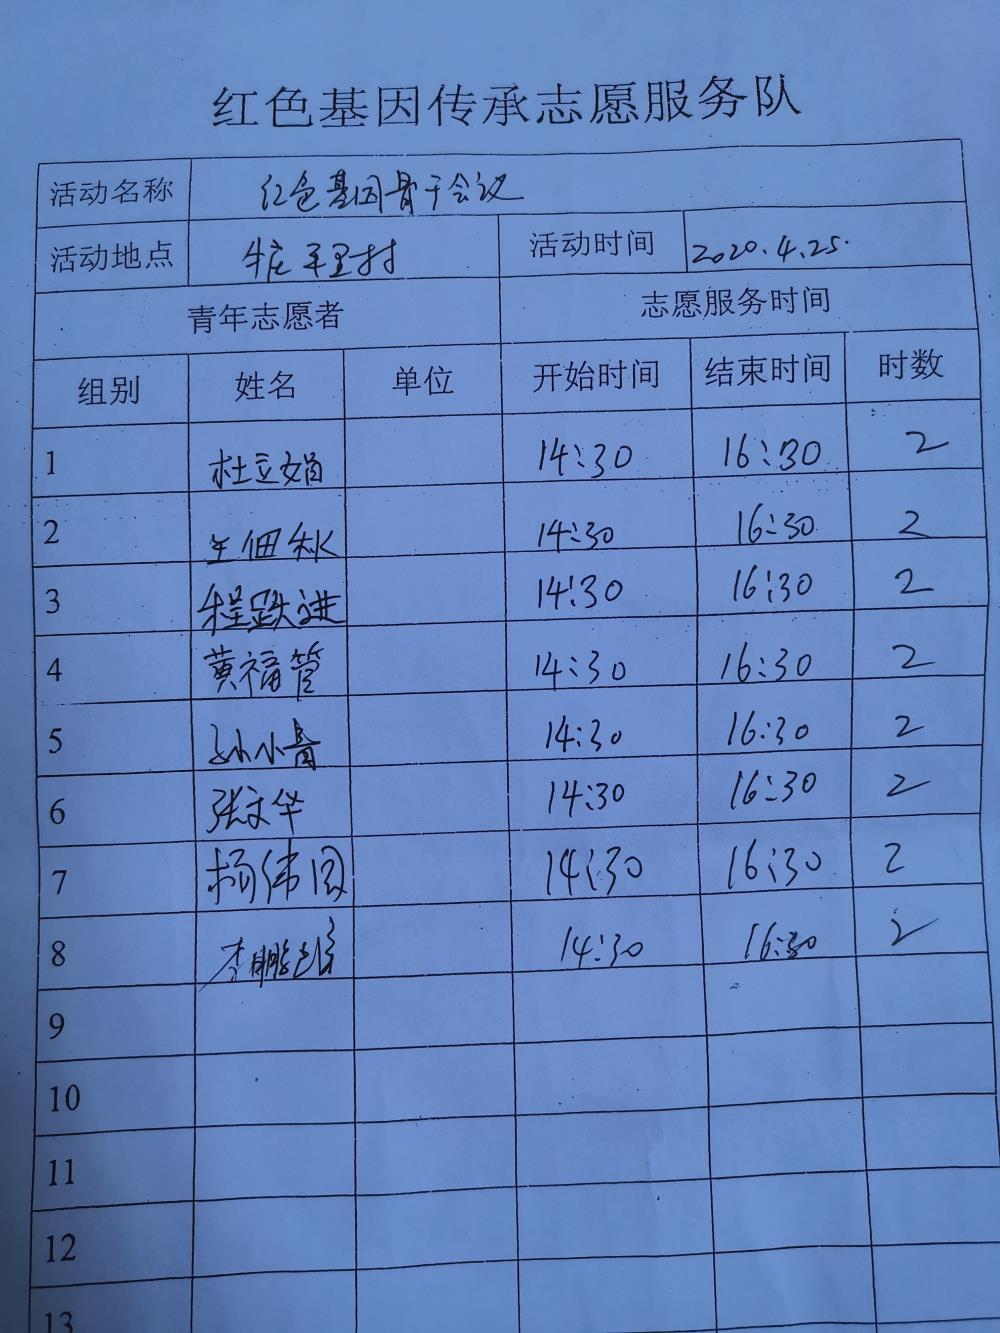 红色基因传承志愿服务队
活动名称 红色基因骨干会议
活动地点 活动时间 2020.4.25.
青年志愿者 志愿服务时间
组别 姓名 单位 开始时间 结束时间 时数
1 杜立娟 14:30 16:30 2
2 14:30 16:30 2
3 程跃进 14:30 16:30 2
4 黄福管 14:30 16:30 2
5 14:30 16:30 2
6 张文华 14:30 16:30 2
7 14:30 16:30 2
8 14:30 16:30 2
9
10
11
12
13